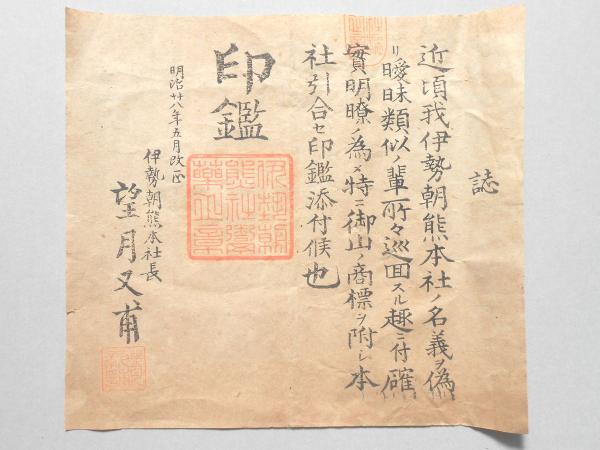 誌
近頃我伊勢朝熊本社ノ名義ヲ偽
リ曖昧類似ノ輩所々巡回スル趣ニ付確
實明瞭ノ為メ特ニ御山ノ商標ヲ附シ本
社引合セ印鑑添付候也
印鑑
明治廿八年五月改正
伊勢朝熊本社長
望月又甫